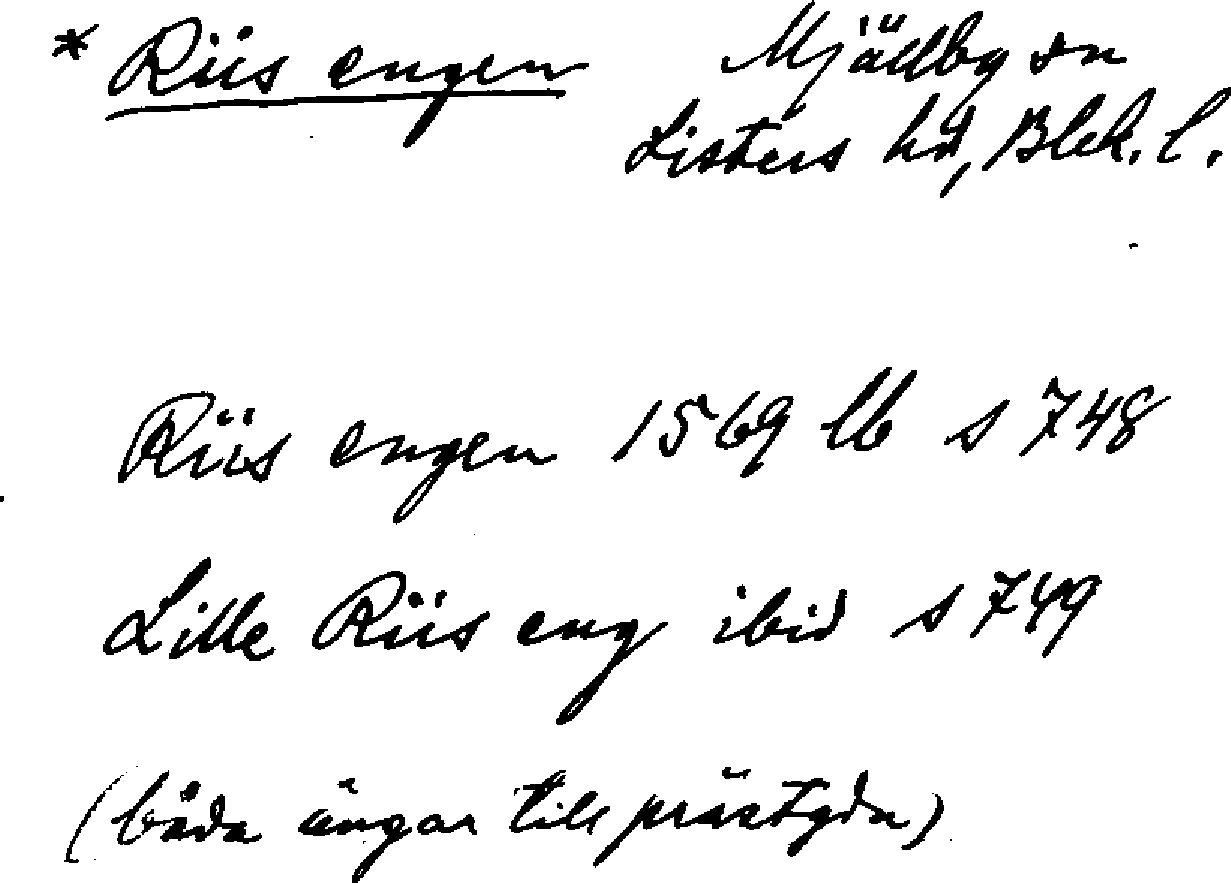 * Riis engen Mjällby sn
Listers hd, Blek. l.
Riis engen 1569 lb s 748
Lille Riis eng ibid s 749
(båda ängar till prästgdn)